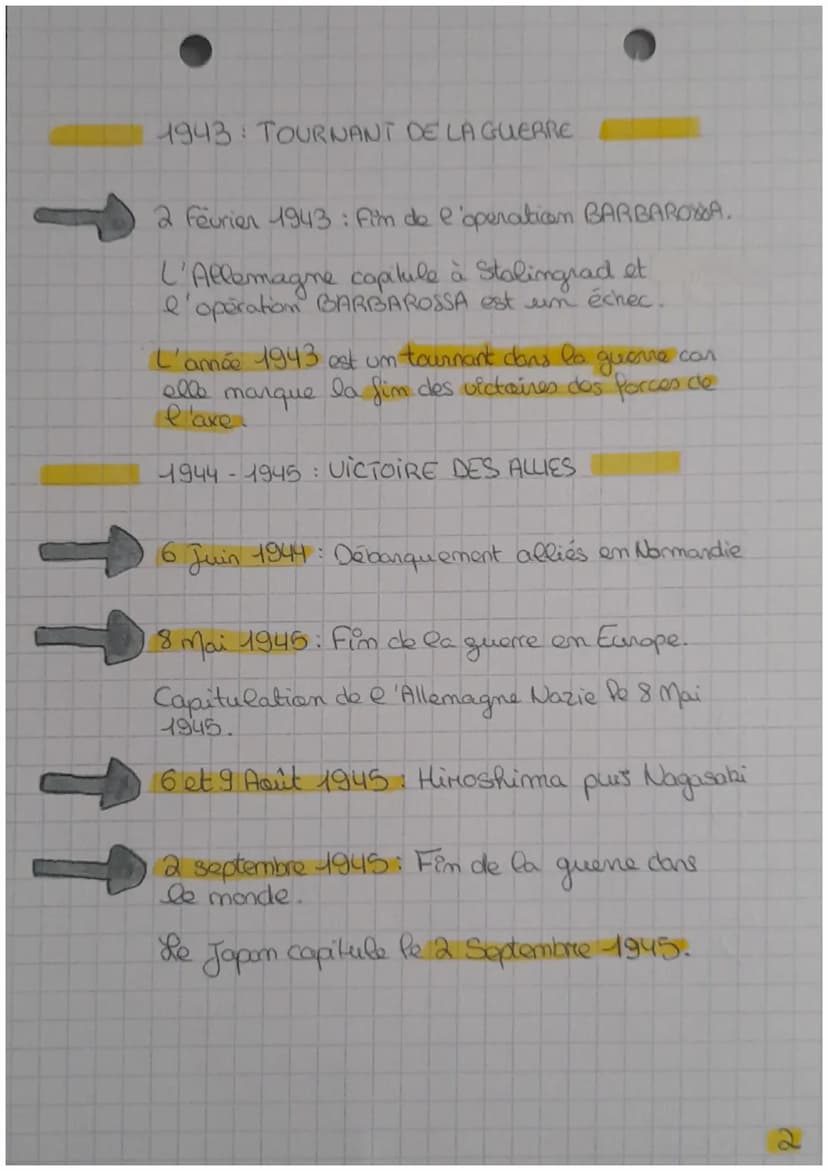 1943 : TOURNANT DE LA GUERRE
2 Février 1943 : Fin de l'operation BARBAROSSA.
L'Allemagne capitule à Stalingrad et
l'opération BARBAROSSA est un échec.
L'année 1943 est un tournant dans la guerre car
elle marque la fin des victoires des forces de
l'axe.
1944 - 1945 : VICTOIRE DES ALLIES
6 Juin 1944 : Débarquement alliés en Normandie
8 Mai 1945 : Fin de la guerre en Europe.
Capitulation de l'Allemagne Nazie le 8 Mai
1945.
6 et 9 Août 1945 : Hiroshima puis Nagasaki
2 septembre 1945 : Fin de la guerre dans
le monde.
Le Japon capitule le 2 Septembre 1945.
2